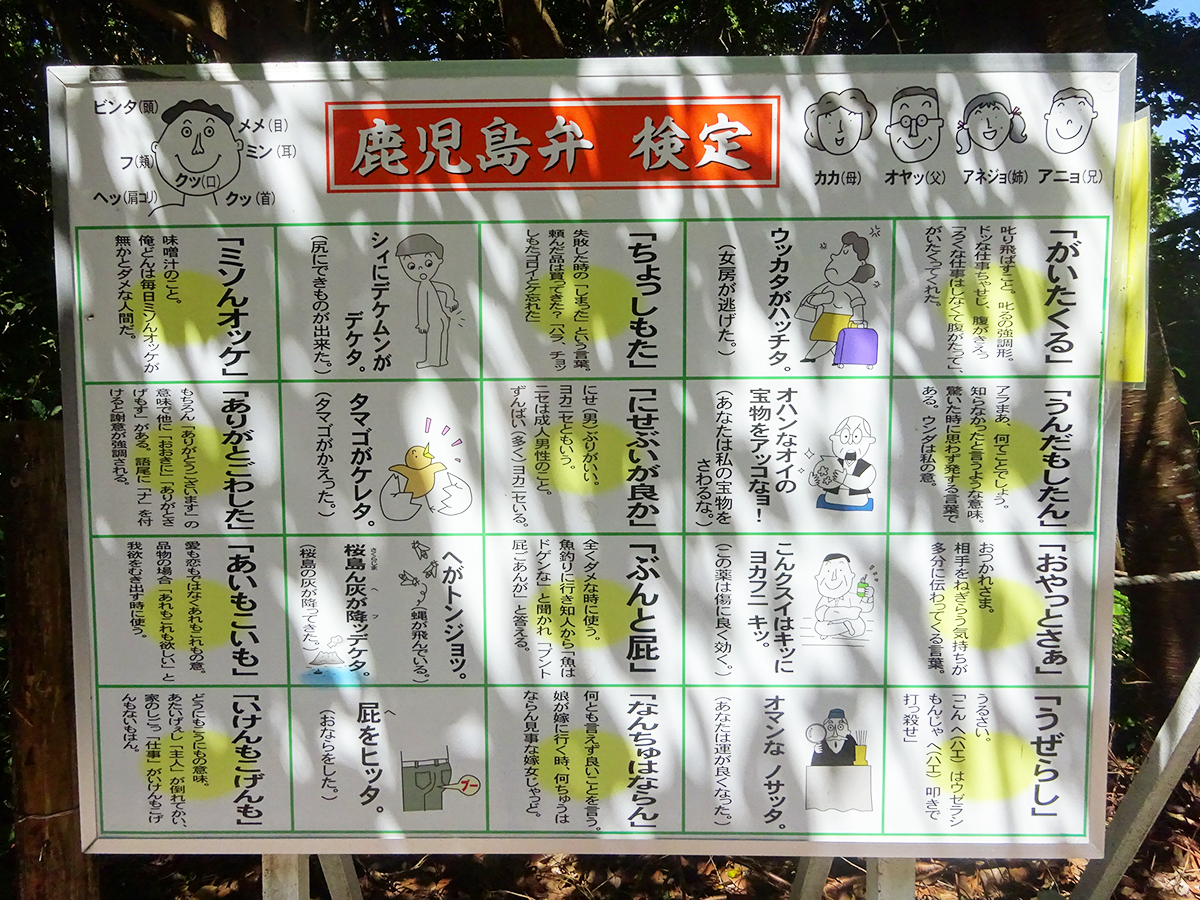 鹿児島弁 検定
ビンタ(頭)
メメ(目)
ミン(耳)
フ(頬)
クッ(口)
ヘッ(肩コリ)
クッ(首)
カカ(母)
オヤッ(父)
アネジョ(姉)
アニョ(兄)
「がいたくる」
叱り飛ばすこと。叱るの強調形。
ドッな仕事ちゃせじ、腹がきえっ
「ろくな仕事はしなくて腹がたって」、
がいたくってくれた。
ウッカタがハッチタ。
(女房が逃げた。)
「ちょっしもた」
失敗した時の「しまった」という言葉。
頼んだ品は買ってきた？「ハラ、チョッ
しもたコロイとケ忘れた」
シィにデケムンが
デケタ。
(尻にできものが出来た。)
「ミソんオッケ」
味噌汁のこと。
俺どんは毎日ミソんオッケが
無かとダメな人間だ。
「うんだもしたん」
アラまあ、何てことでしょう。
知らなかったと言うような意味。
驚いた時に思わず発する言葉で
ある。ウンダは私の意。
オハンなオイの
宝物をアッコなョ！
(あなたは私の宝物を
さわるな。)
「にせぶいが良か」
にせ(男)ぶりがいい。
ヨカニセともいう。
ニセは成人男性のこと。
ずんばい(多く)ヨカニセいる。
タマゴがケレタ。
(タマゴがかえった。)
「ありがとごわした」
もちろん「ありがとうございます」の
意味で他に「おおきに」「ありがとさ
げもす」がある。語尾に「ナ」を付
けると謝意が強調される。
「おやっとさぁ」
おつかれさま。
相手をねぎらう気持ちが
多分に伝わってくる言葉。
こんクスイはキッに
ヨカフニ キッ。
(この薬は傷に良く効く。)
「ぶんと屁」
全くダメな時に使う。
魚釣りに行き知人から「魚は
ドゲンな」と聞かれ「ブント
屁ごあんが」と答える。
ヘがトンジョッ。
(蝿が飛んでいる。)
桜島ん灰が降ッデケタ。
さくらじま
ヘ
フ
(桜島の灰が降ってきた。)
「あいもこいも」
愛も恋もではなくあれもこれもの意。
品物の場合「あれもこれも欲しい」と
我欲をむき出す時に使う。
「うぜらし」
うるさい。
「こん ヘ(ハエ)はウゼラシ
もんじゃ ヘ(ハエ) 叩きで
打っ殺せ」
オマンな ノサッタ。
(あなたは運が良くなった。)
「なんちゅはならん」
何とも言えず良いことを言う。
娘が嫁に行く時、何ちゅうは
ならん見事な嫁女じゃっど。
屁をヒッタ。
ヘ
(おならをした。)
プー
「いけんもこげんも」
どうにもこうにもの意味。
あたいげぇし「主人」が倒れてかい、
家のしごっ「仕事」がいけんもこげ
んもないもはん。